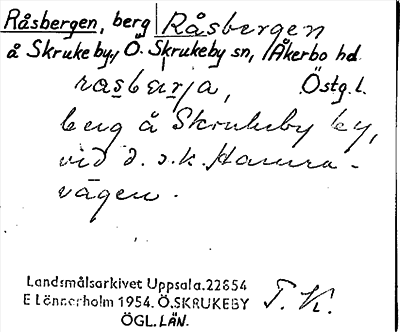 Råsbergen, berg Råsbergen
å Skrukeby, Ö. Skrukeby sn, Åkerbo hd.
Östg. l.
berg å Skrukeby by,
vid d. s.k. Hamra-
vägen.
Landsmålsarkivet Uppsala. 22854
E Lönnerholm 1954. Ö. SKRUKEBY
ÖGL. LÄN.
T. K.